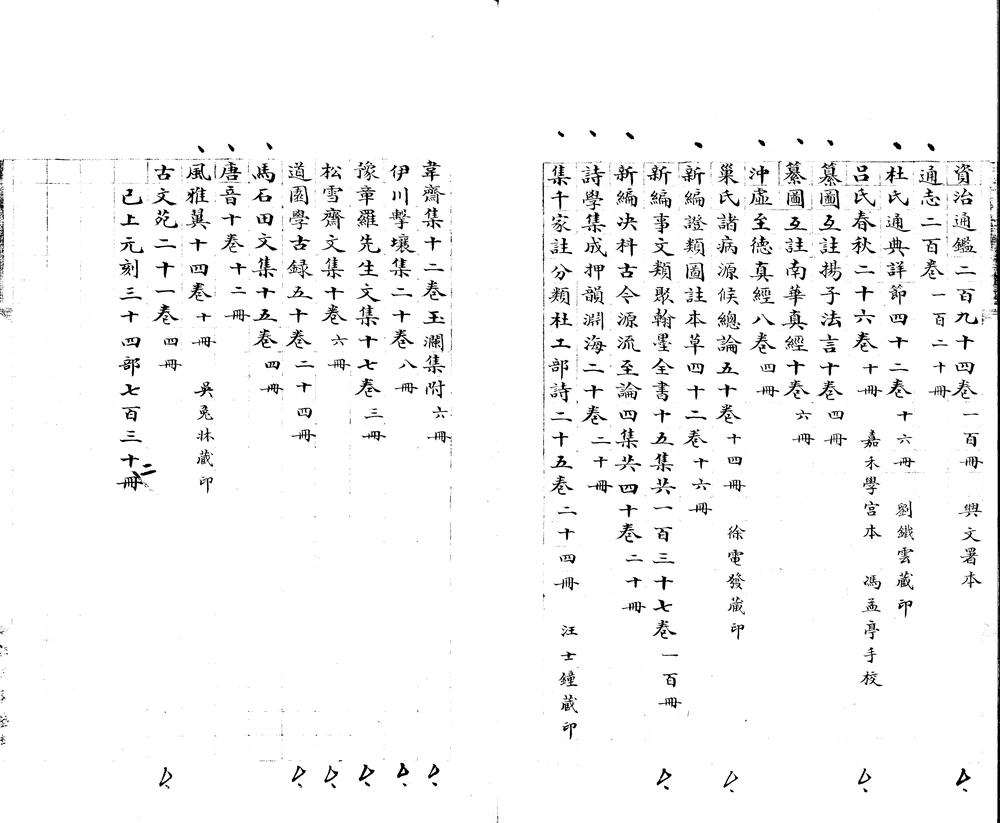 資治通鑑二百九十四卷 一百冊 興文署本
通志二百卷 一百二十冊
杜氏通典詳節四十二卷 十六冊 劉鐵雲藏印
呂氏春秋二十六卷 十冊 嘉禾學宮本 馮孟亭手校
纂圖互註揚子法言十卷 四冊
纂圖互註南華真經十卷 六冊
沖虛至德真經八卷 四冊
巢氏諸病源候總論五十卷 十四冊 徐電發藏印
新編證類圖註本草四十二卷 十六冊
新編事文類聚翰墨全書十五集共一百三十七卷 一百冊
新編決科古今源流至論四集共四十卷 二十冊
詩學集成押韻淵海二十卷 二十冊
集千家註分類杜工部詩二十五卷 二十四冊 汪士鐘藏印
韋齋集十二卷玉瀾集附 六冊
伊川擊壤集二十卷 八冊
豫章羅先生文集十七卷 三冊
松雪齋文集十卷 六冊
道園學古録五十卷 二十四冊
馬石田文集十五卷 四冊
唐音十卷 十二冊
風雅翼十四卷 十冊 吳兔牀藏印
古文苑二十一卷 四冊
已上元刻三十四部七百三十二冊